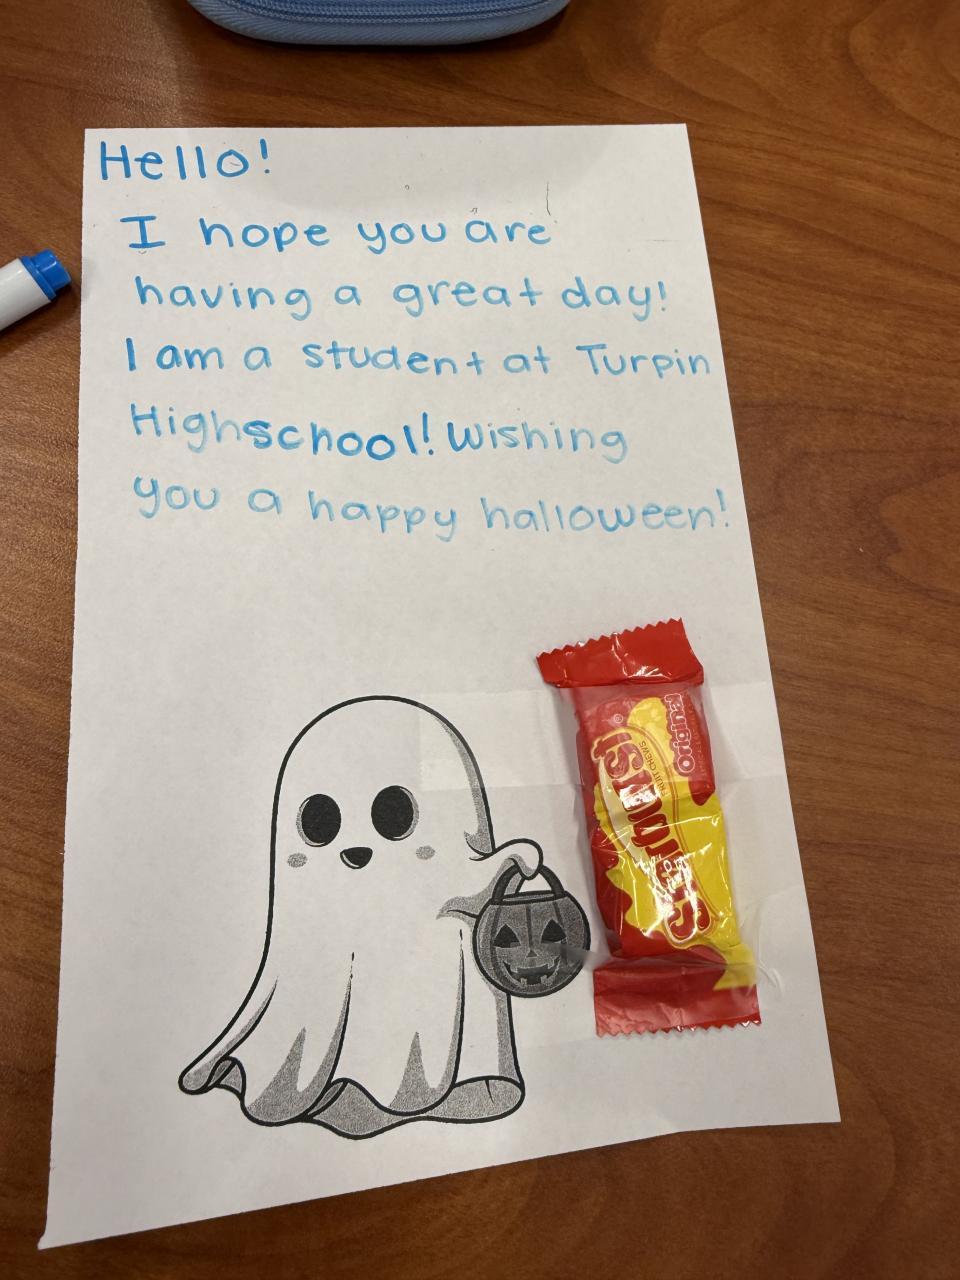 Hello!
I hope you are
having a great day!
I am a student at Turpin
Highschool! Wishing
you a happy halloween!
Original
FRUIT CHEWS
STARBURST